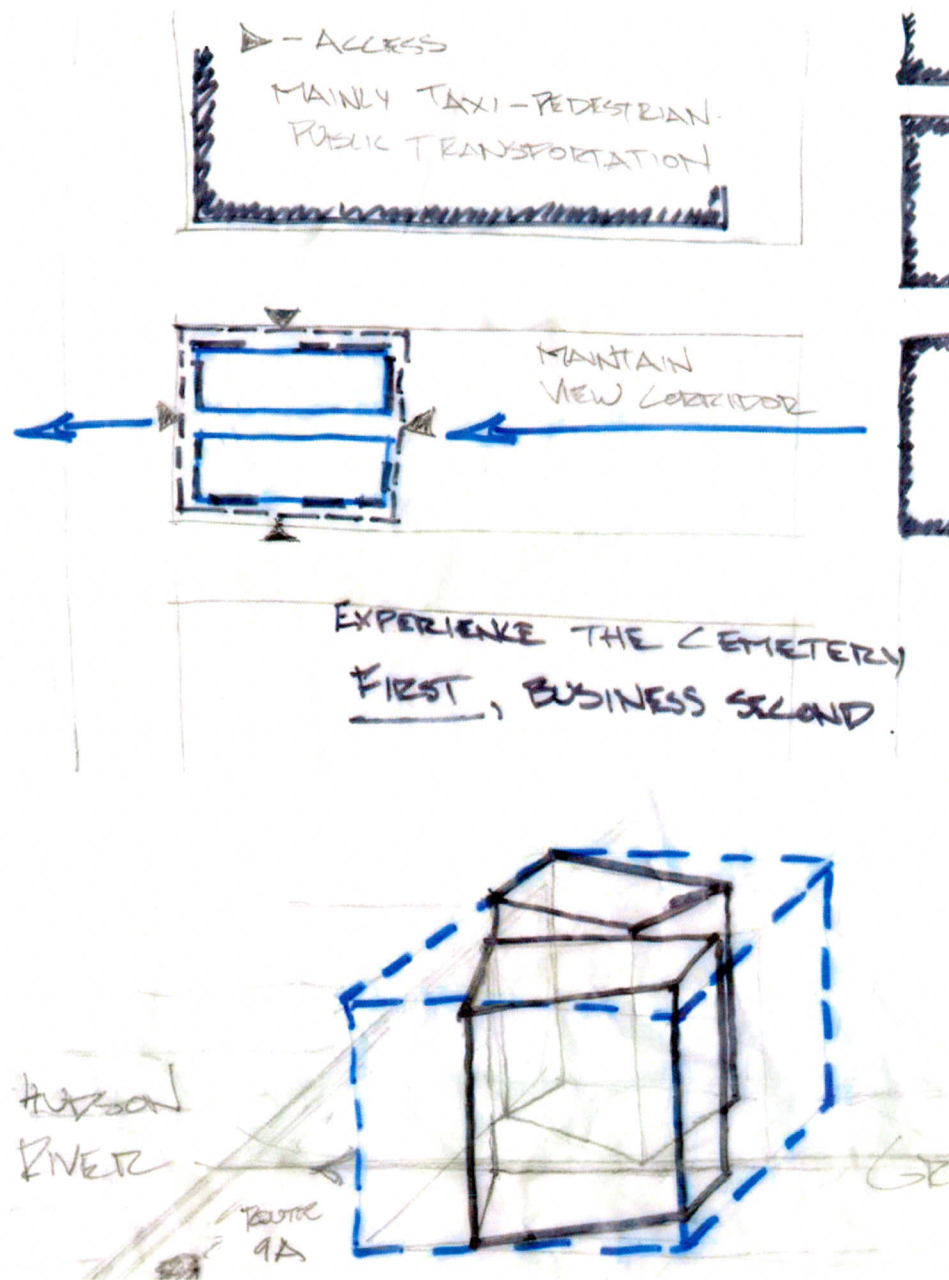 - ACCESS
MAINLY TAXI-PEDESTRIAN.
PUBLIC TRANSPORTATION
MAINTAIN
VIEW CORRIDOR
EXPERIENCE THE CEMETERY
FIRST, BUSINESS SECOND.
HUDSON
RIVER
GR
ROUTE
9A